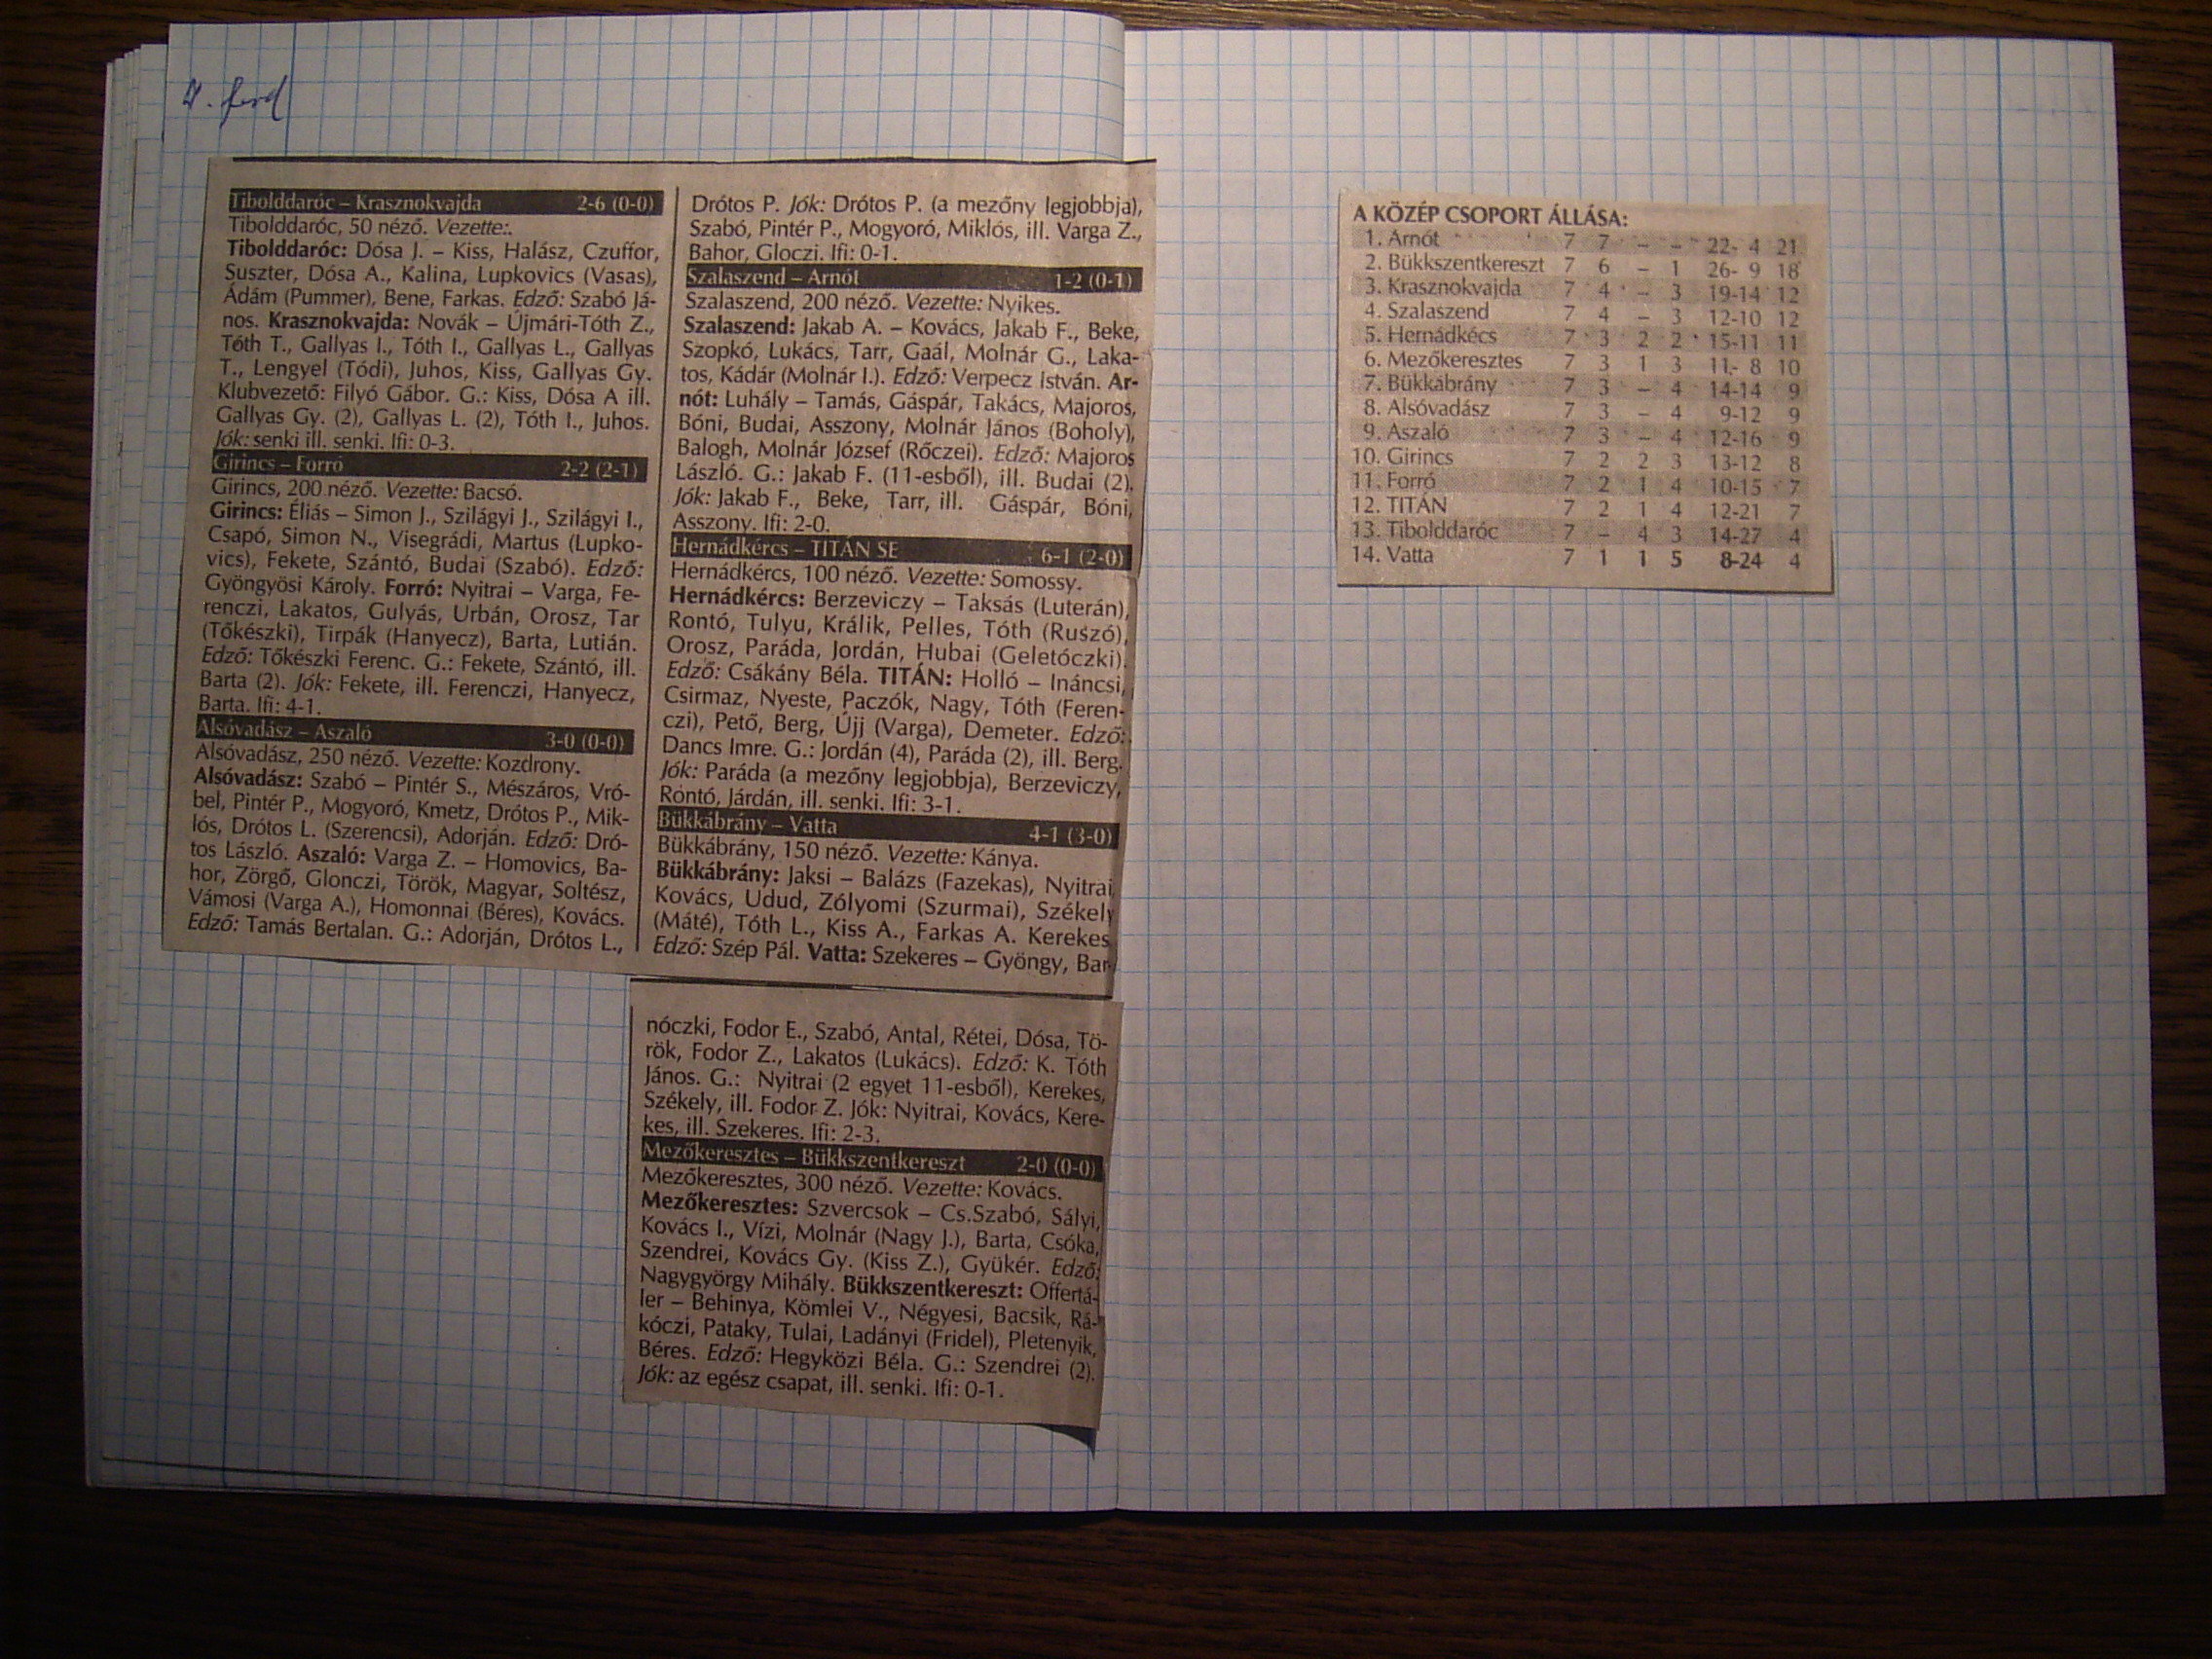 7. ford
Tibolddaróc – Krasznokvajda 2-6 (0-0)
Tibolddaróc, 50 néző. Vezette:.
Tibolddaróc: Dósa J. – Kiss, Halász, Czuffor,
Suszter, Dósa A., Kalina, Lupkovics (Vasas),
Ádám (Pummer), Bene, Farkas. Edző: Szabó Já-
nos. Krasznokvajda: Novák – Újmári-Tóth Z.,
Tóth T., Gallyas I., Tóth I., Gallyas L., Gallyas
T., Lengyel (Tódi), Juhos, Kiss, Gallyas Gy.
Klubvezető: Filyó Gábor. G.: Kiss, Dósa A ill.
Gallyas Gy. (2), Gallyas L. (2), Tóth I., Juhos.
Jók: senki ill. senki. Ifi: 0-3.
Girincs – Forró 2-2 (2-1)
Girincs, 200 néző. Vezette: Bacsó.
Girincs: Éliás – Simon J., Szilágyi J., Szilágyi I.,
Csapó, Simon N., Visegrádi, Martus (Lupko-
vics), Fekete, Szántó, Budai (Szabó). Edző:
Gyöngyösi Károly. Forró: Nyitrai – Varga, Fe-
renczi, Lakatos, Gulyás, Urbán, Orosz, Tar
(Tőkészki), Tirpák (Hanyecz), Barta, Lutián.
Edző: Tőkészki Ferenc. G.: Fekete, Szántó, ill.
Barta (2). Jók: Fekete, ill. Ferenczi, Hanyecz,
Barta. Ifi: 4-1.
Alsóvadász – Aszaló 3-0 (0-0)
Alsóvadász, 250 néző. Vezette: Kozdrony.
Alsóvadász: Szabó – Pintér S., Mészáros, Vró-
bel, Pintér P., Mogyoró, Kmetz, Drótos P., Mik-
lós, Drótos L. (Szerencsi), Adorján. Edző: Dró-
tos László. Aszaló: Varga Z. – Homovics, Ba-
hor, Zörgő, Glonczi, Török, Magyar, Soltész,
Vámosi (Varga A.), Homonnai (Béres), Kovács.
Edző: Tamás Bertalan. G.: Adorján, Drótos L.,
Drótos P. Jók: Drótos P. (a mezőny legjobbja),
Szabó, Pintér P., Mogyoró, Miklós, ill. Varga Z.,
Bahor, Gloczi. Ifi: 0-1.
Szalaszend – Arnót 1-2 (0-1)
Szalaszend, 200 néző. Vezette: Nyikes.
Szalaszend: Jakab A. – Kovács, Jakab F., Beke,
Szopkó, Lukács, Tarr, Gaál, Molnár G., Laka-
tos, Kádár (Molnár I.). Edző: Verpecz István. Ar-
nót: Luhály – Tamás, Gáspár, Takács, Majoros,
Bóni, Budai, Asszony, Molnár János (Boholy),
Balogh, Molnár József (Rőczei). Edző: Majoros
László. G.: Jakab F. (11-esből), ill. Budai (2).
Jók: Jakab F., Beke, Tarr, ill. Gáspár, Bóni,
Asszony. Ifi: 2-0.
Hernádkércs – TITÁN SE 6-1 (2-0)
Hernádkércs, 100 néző. Vezette: Somossy.
Hernádkércs: Berzeviczy – Taksás (Luterán),
Rontó, Tulyu, Králik, Pelles, Tóth (Ruszó),
Orosz, Paráda, Jordán, Hubai (Geletóczki).
Edző: Csákány Béla. TITÁN: Holló – Ináncsi,
Csirmaz, Nyeste, Paczók, Nagy, Tóth (Feren-
czi), Pető, Berg, Újj (Varga), Demeter. Edző:
Dancs Imre. G.: Jordán (4), Paráda (2), ill. Berg.
Jók: Paráda (a mezőny legjobbja), Berzeviczy,
Rontó, Járdán, ill. senki. Ifi: 3-1.
Bükkábrány – Vatta 4-1 (3-0)
Bükkábrány, 150 néző. Vezette: Kánya.
Bükkábrány: Jaksi – Balázs (Fazekas), Nyitrai,
Kovács, Udud, Zólyomi (Szurmai), Székely
(Máté), Tóth L., Kiss A., Farkas A. Kerekes.
Edző: Szép Pál. Vatta: Szekeres – Gyöngy, Bar-
nóczki, Fodor E., Szabó, Antal, Rétei, Dósa, Tö-
rök, Fodor Z., Lakatos (Lukács). Edző: K. Tóth
János. G.: Nyitrai (2 egyet 11-esből), Kerekes,
Székely, ill. Fodor Z. Jók: Nyitrai, Kovács, Kere-
kes, ill. Szekeres. Ifi: 2-3.
Mezőkeresztes – Bükkszentkereszt 2-0 (0-0)
Mezőkeresztes, 300 néző. Vezette: Kovács.
Mezőkeresztes: Szvercsok – Cs.Szabó, Sályi,
Kovács I., Vízi, Molnár (Nagy J.), Barta, Csóka,
Szendrei, Kovács Gy. (Kiss Z.), Gyükér. Edző:
Nagygyörgy Mihály. Bükkszentkereszt: Offertá-
ler – Behinya, Kömlei V., Négyesi, Bacsik, Rá-
kóczi, Pataky, Tulai, Ladányi (Fridel), Pletenyik,
Béres. Edző: Hegyközi Béla. G.: Szendrei (2).
Jók: az egész csapat, ill. senki. Ifi: 0-1.
A KÖZÉP CSOPORT ÁLLÁSA:
1. Arnót 7 7 – – 22- 4 21
2. Bükkszentkereszt 7 6 – 1 26- 9 18
3. Krasznokvajda 7 4 – 3 19-14 12
4. Szalaszend 7 4 – 3 12-10 12
5. Hernádkécs 7 3 2 2 15-11 11
6. Mezőkeresztes 7 3 1 3 11- 8 10
7. Bükkábrány 7 3 – 4 14-14 9
8. Alsóvadász 7 3 – 4 9-12 9
9. Aszaló 7 3 – 4 12-16 9
10. Girincs 7 2 2 3 13-12 8
11. Forró 7 2 1 4 10-15 7
12. TITÁN 7 2 1 4 12-21 7
13. Tibolddaróc 7 – 4 3 14-27 4
14. Vatta 7 1 1 5 8-24 4